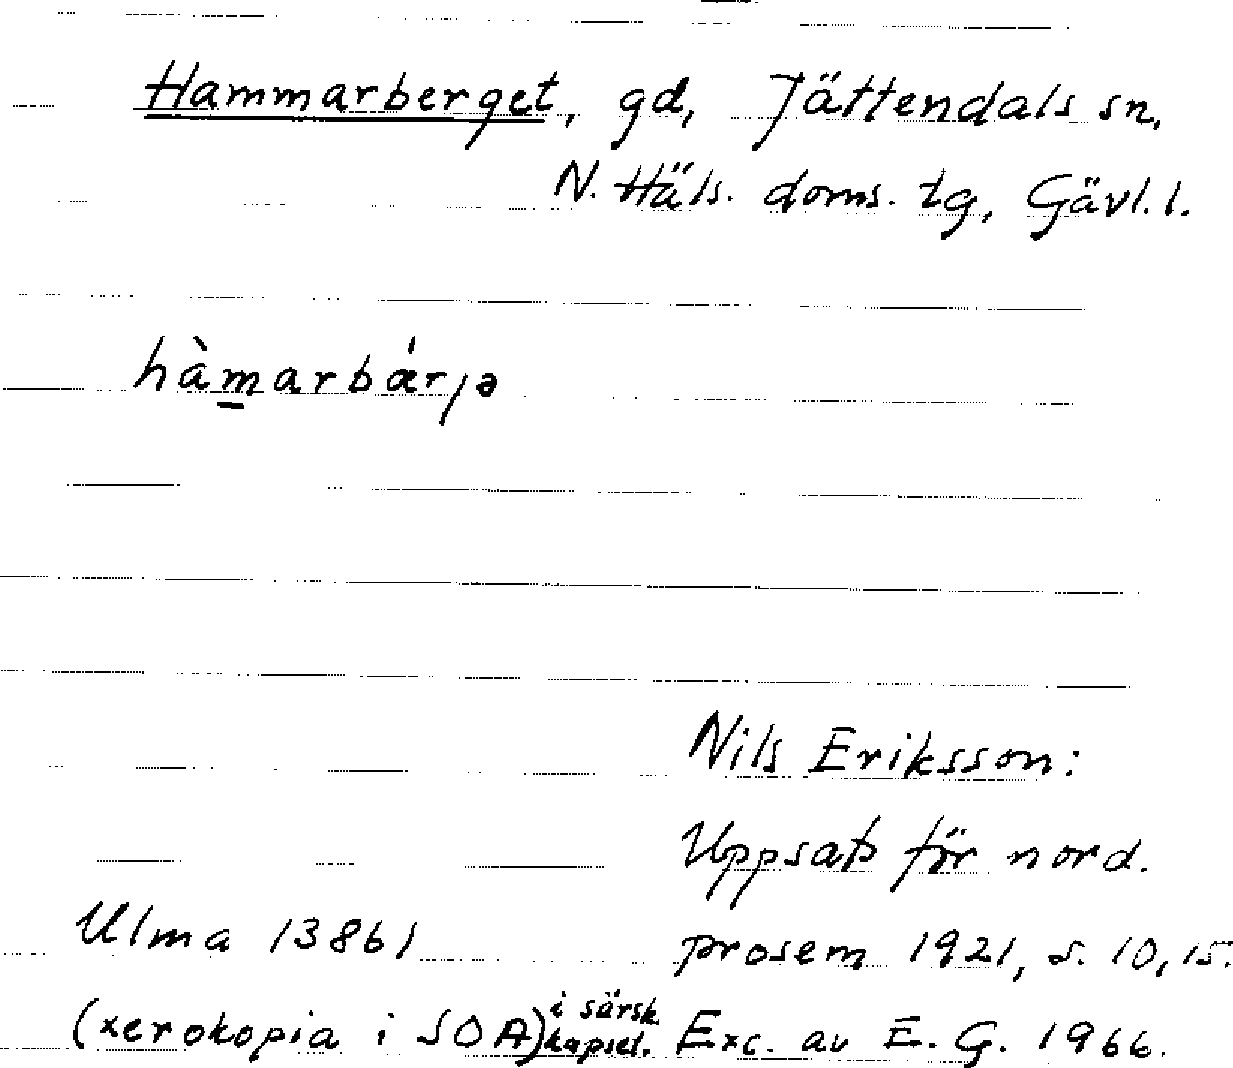 Hammarberget, gd, Jättendals sn,
N. Häls. doms. tg, Gävl. l.
hàmarbár̷ə
Nils Eriksson:
Uppsats för nord.
prosem 1921, s. 10, 15.
Ulma 13861
(xerokopia i SOA) i särsk. kapsel. Exc. av E. G. 1966.